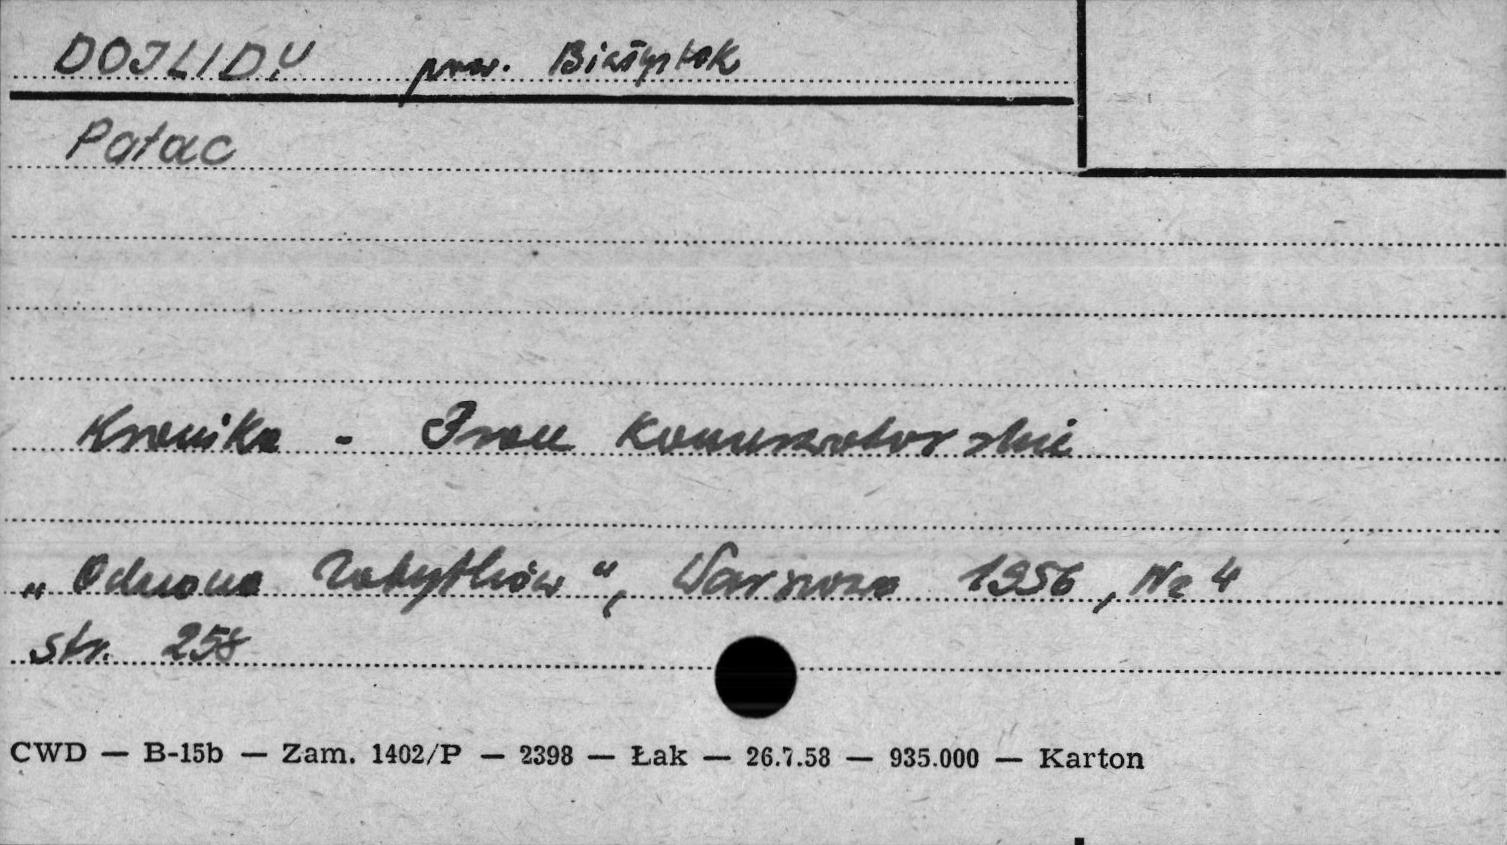 DOJLIDY pow. Białystok
Pałac
Kronika - Prace konserwatorskie
„Ochrona Zabytków“, Warszawa 1956, Nr 4
str. 258
CWD — B-15b — Zam. 1402/P — 2398 — Łak — 26.7.58 — 935.000 — Karton